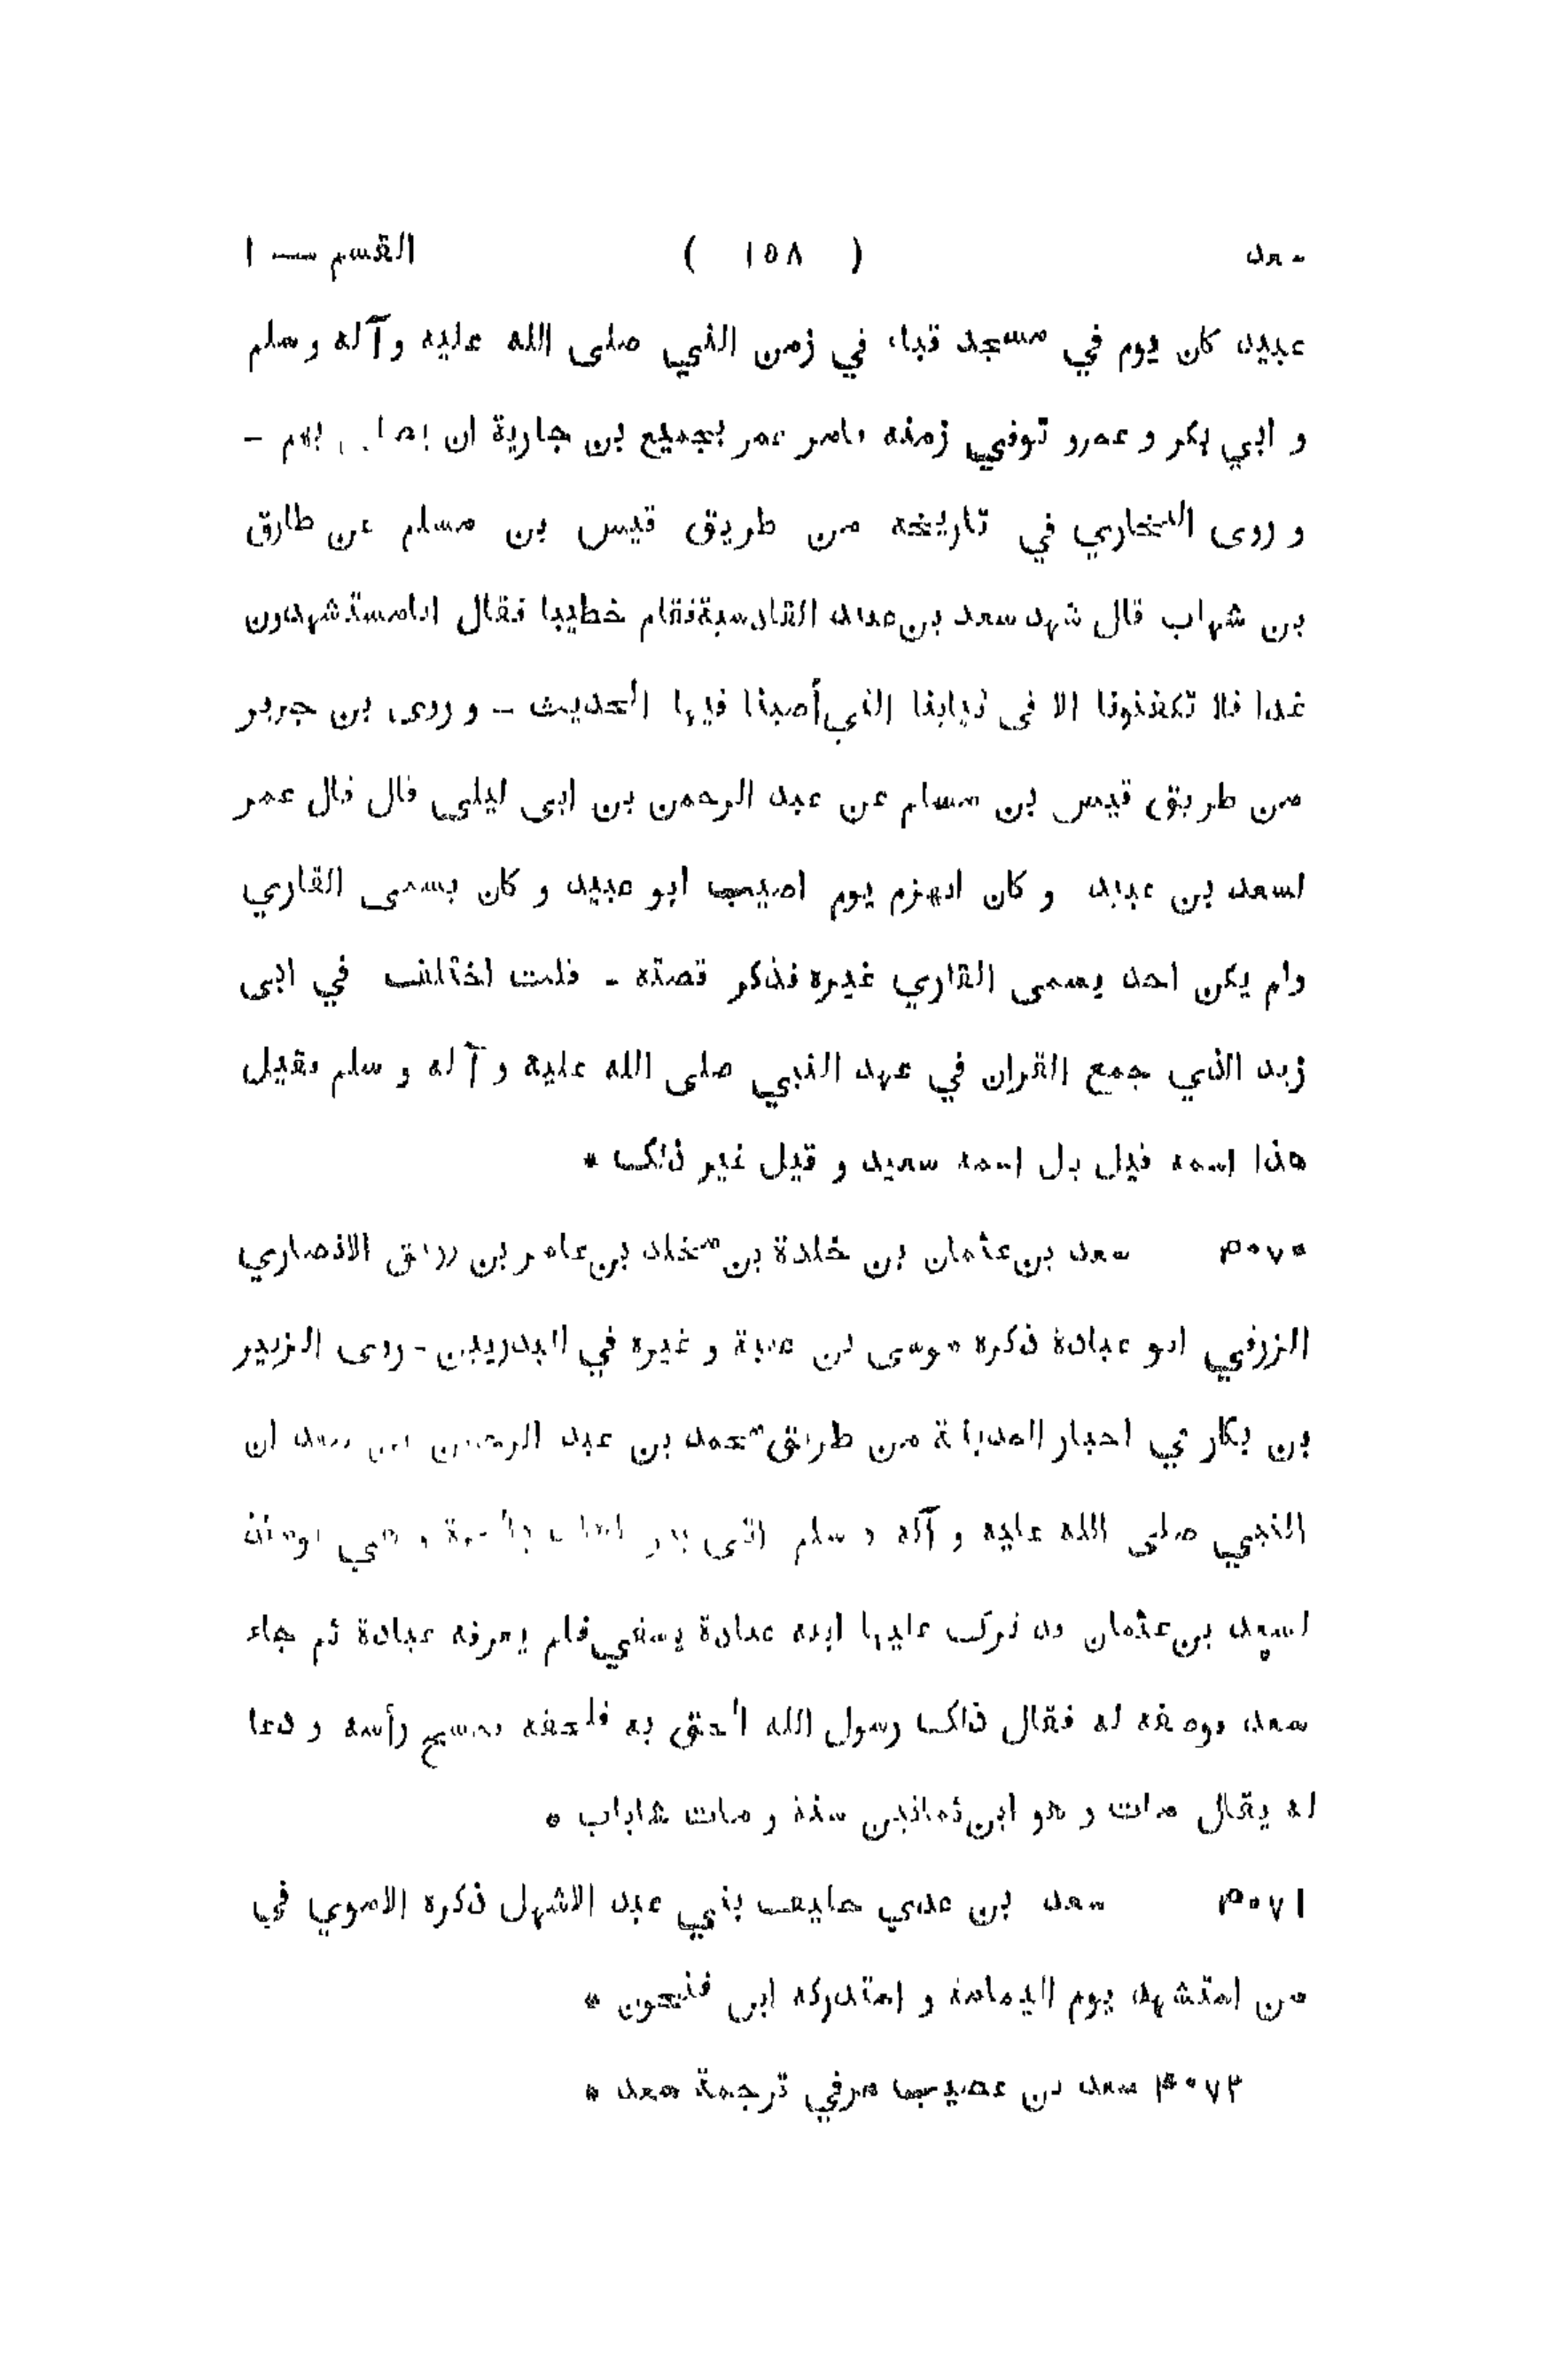 سعد ( ١٥٨ ) القسم — ١
عبيد كان يوم في مسجد قباء في زمن النبي صلى الله عليه وآله وسلم
و ابي بكر و عمرو توفي زمنه فامر عمر بجميع بن جارية ان بهم –
و روى البخاري في تاريخه من طريق قيس بن مسلم عن طارق
بن شهاب قال شهد سعد بن عبيد القادسية فقام خطيبا فقال انا مستشهدون
غدا فلا تكفنونا الا في ثيابنا التي أصبنا فيها الحديث – و روى بن جرير
من طريق قيس بن مسلم عن عبد الرحمن بن ابى ليلى قال قال عمر
لسعد بن عبيد و كان انهزم يوم اصيب ابو عبيد و كان يسمى القاري
ولم يكن احد يسمى القاري غيره فذكر قصته – قلت اختلف في ابى
زيد الذي جمع القران في عهد النبي صلى الله عليه و آله و سلم فقيل
هذا اسمه قيل بل اسمه سعيد و قيل غير ذلك *
٣٠٧٠ سعد بن عثمان بن خلدة بن مخلد بن عامر بن زريق الانصاري
الزرقي ابو عبادة ذكره موسى بن عقبة و غيره في البدريين – روى الزبير
بن بكار في اخبار المدينة من طريق محمد بن عبد الرحمن بن سعد ان
النبي صلى الله عليه و آله و سلم اتى بير و هي يومئذ
لسعد بن عثمان قد ترك عليها ابنه عبادة يسقي فلم يعرفه عبادة ثم جاء
سعد فوصفه له فقال ذلك رسول الله الحق به فلحقه فمسح رأسه و دعا
له يقال مات و هو ابن ثمانين سنة و مات شاباب *
٣٠٧١ سعد بن عدي حليف بني عبد الاشهل ذكره الاموي في
من استشهد يوم اليمامة و استدركه ابن فتحون *
٣٠٧٢ سعد بن عصيب مرفي ترجمة سعد *